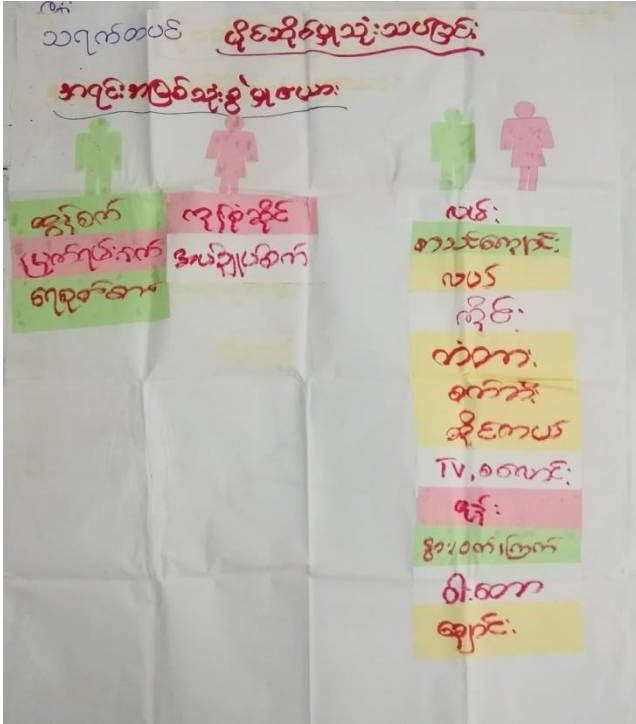 သရက်တပင် ပိုင်ဆိုင်မှုသုံးသပ်ခြင်း
အရင်းအမြစ်သုံးစွဲမှုဇယား
ထွန်စက်
မြက်ရမ်းစက်
ရေစုပ်စက်
ကုန်စုံဆိုင်
အပ်ချုပ်စက်
လမ်း
စာသင်ကျောင်း
လယ်
ကိုင်း
တံတား
စက်ဘီး
ဆိုင်ကယ်
TV, စလောင်း
ဖုန်း
နွား၊ဝက်၊ကြက်
ဝါးတော
ချောင်း